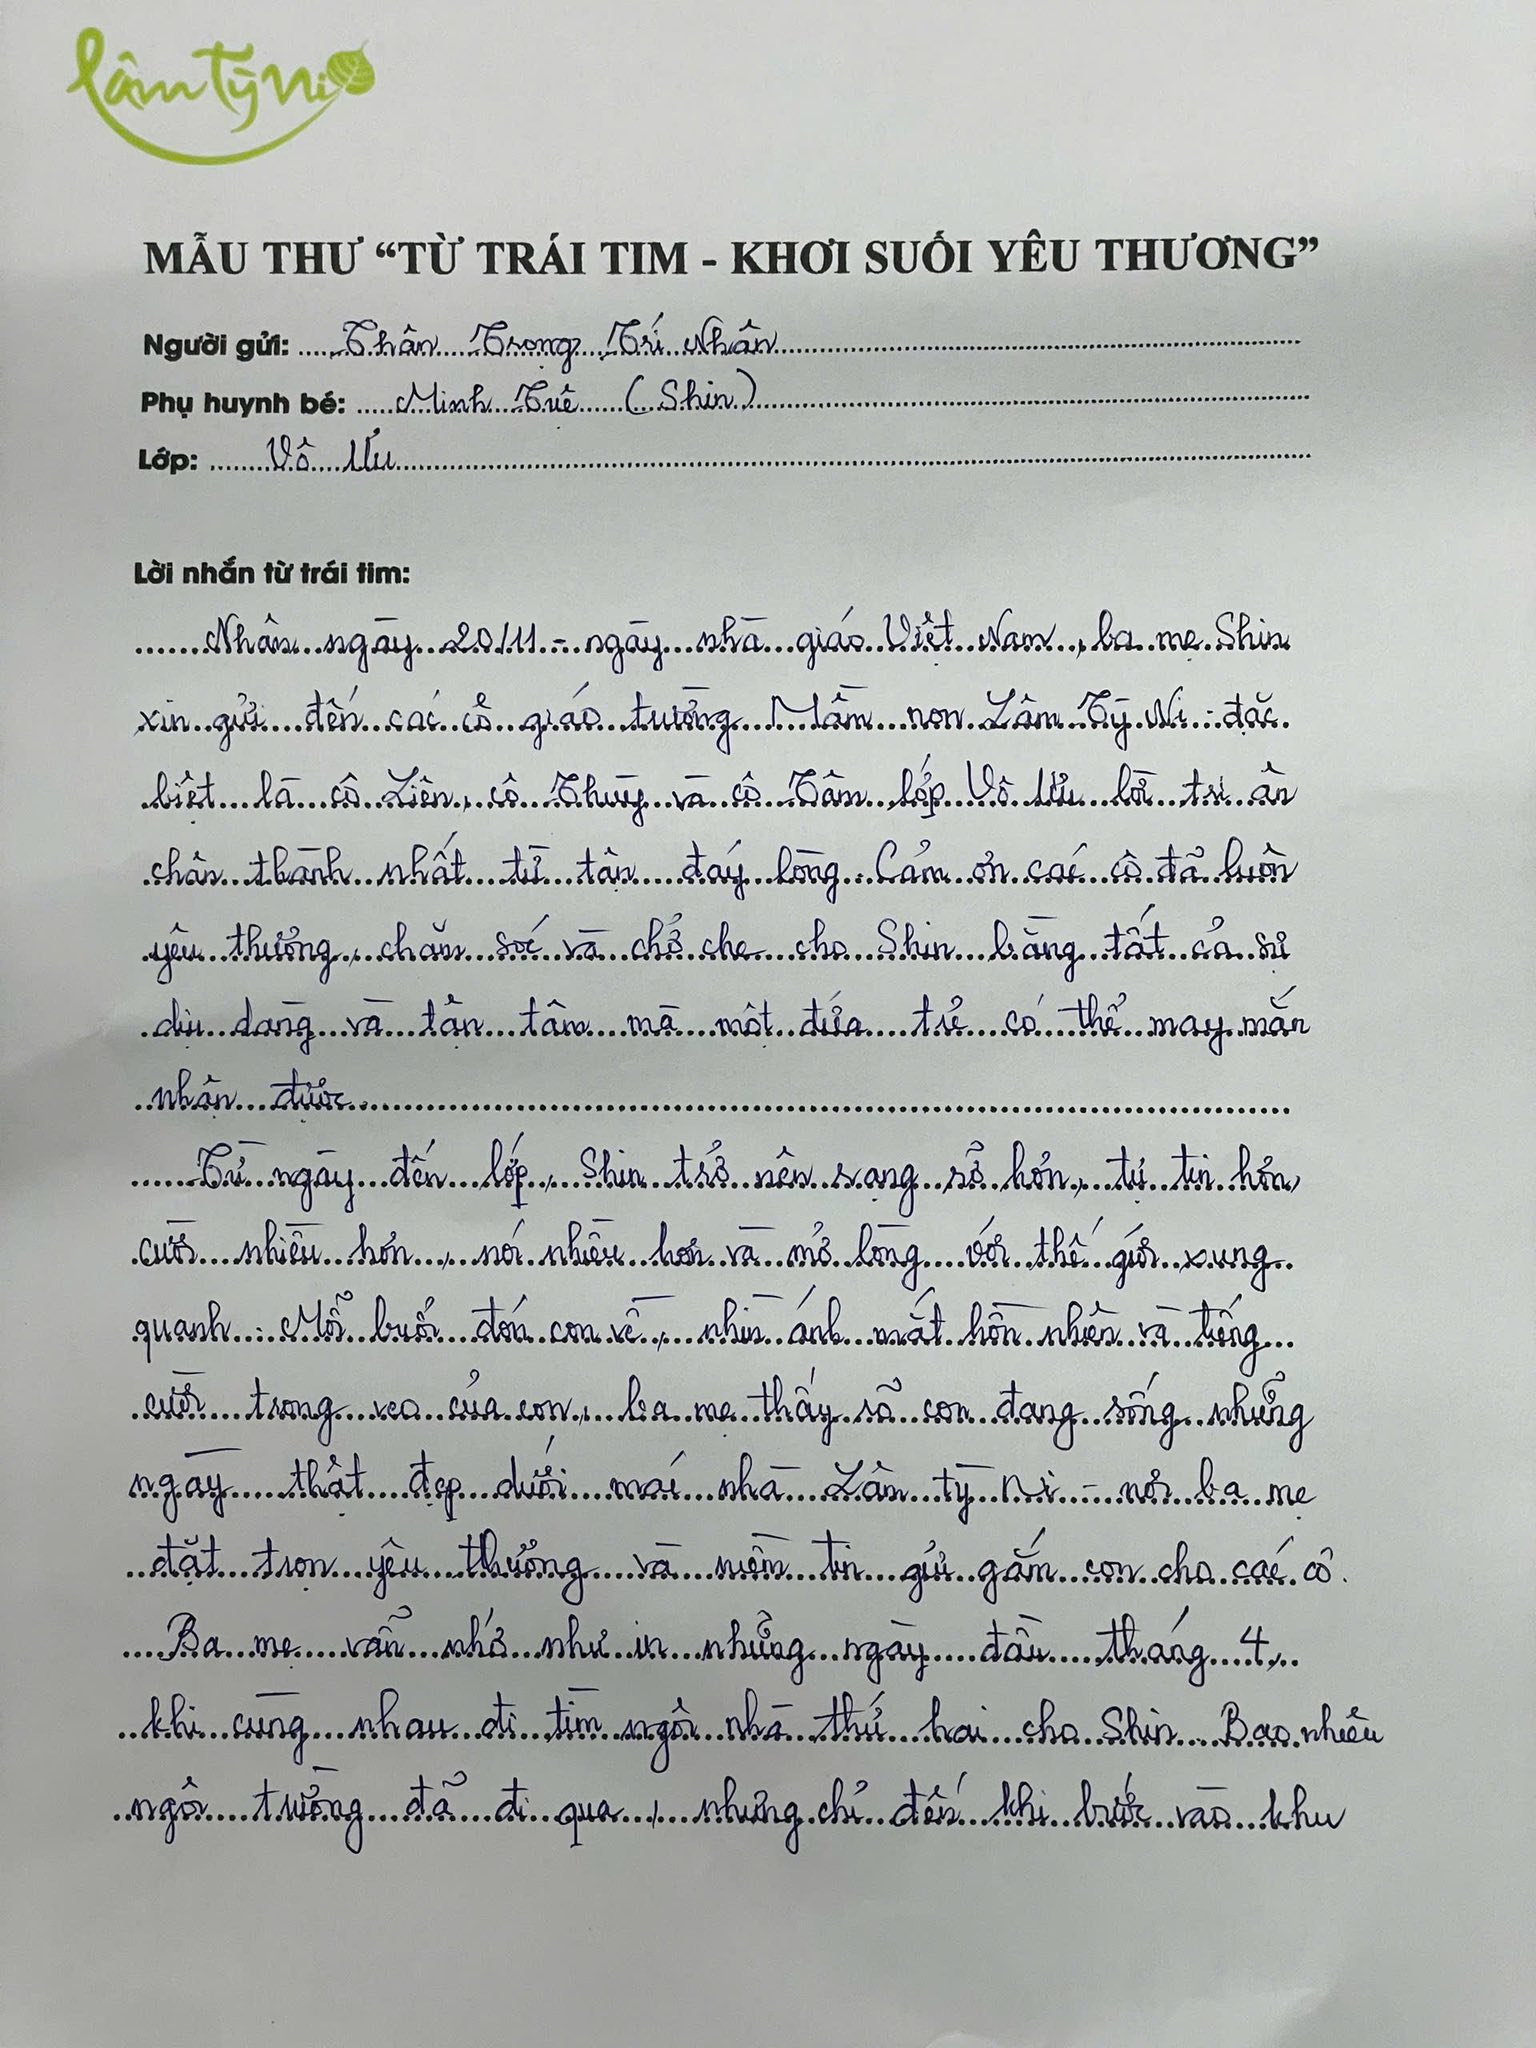 Lâm Tỳ Ni
MẪU THƯ “TỪ TRÁI TIM - KHƠI SUỐI YÊU THƯƠNG”
Người gửi: Thân Trọng Trí Nhân
Phụ huynh bé: Minh Tuệ (Shin)
Lớp: Vô Ưu
Lời nhắn từ trái tim:
Nhân ngày 20/11 - ngày nhà giáo Việt Nam, ba mẹ Shin
xin gửi đến các cô giáo trường Mầm non Lâm Tỳ Ni - đặc
biệt là cô Liên, cô Thùy và cô Tâm lớp Vô Ưu lời tri ân
chân thành nhất từ tận đáy lòng. Cảm ơn các cô đã luôn
yêu thương, chăm sóc và chở che cho Shin bằng tất cả sự
dịu dàng và tận tâm mà một đứa trẻ có thể may mắn
nhận được
Từ ngày đến lớp, Shin trở nên rạng rỡ hơn, tự tin hơn,
cười nhiều hơn, nói nhiều hơn và mở lòng với thế giới xung
quanh. Mỗi buổi đón con về, nhìn ánh mắt hồn nhiên và tiếng
cười trong veo của con, ba mẹ thấy rõ con đang sống những
ngày thật đẹp dưới mái nhà Lâm Tỳ Ni - nơi ba mẹ
đặt trọn yêu thương và niềm tin gửi gắm con cho các cô.
Ba mẹ vẫn nhớ như in những ngày đầu tháng 4,
khi cùng nhau đi tìm ngôi nhà thứ hai cho Shin. Bao nhiêu
ngôi trường đã đi qua, nhưng chỉ đến khi bước vào khu